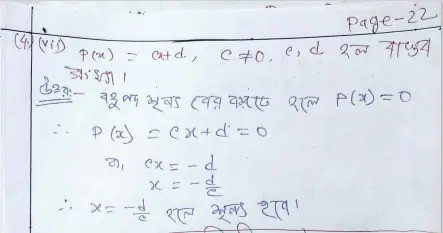 Page-22
(4) (vii) P(x) = cx+d, c ≠0, c, d হল বাস্তব
সংখ্যা।
উত্তরঃ- বহুপদ শূন্য বের করতে হলে P(x) = 0
∴ P(x) = cx+d = 0
বা, cx = -d
x = -d/c
∴ x = -d/c হলে শূন্য হবে।